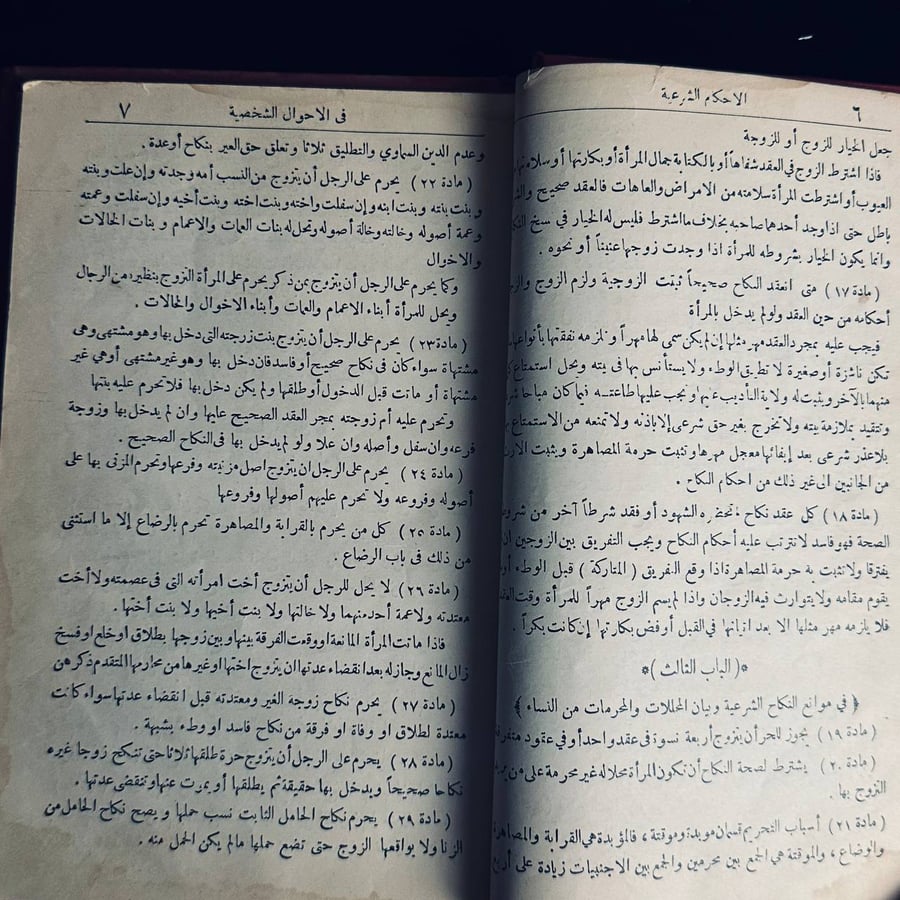 ٦
الاحكام الشرعية
جعل الخيار للزوج أو للزوجة
فاذا اشترط الزوج فى العقد شفاها أو بالكتابة جمال المرأة أو بكارتها أو سلامتها
العيوب أو اشترطت المرأة سلامته من الامراض والعاهات فالعقد صحيح والشرط
باطل حتى اذا وجد أحدهما صاحبه بخلاف ما اشترط فليس له الخيار فى
وانما يكون الخيار بشروطه للمرأة اذا وجدت زوجها عنيناً أو نحوه .
( مادة ١٧ ) متى انعقد النكاح صحيحاً ثبتت الزوجية ولزم الزوج
أحكامه من حين العقد ولو لم يدخل بالمرأة
فيجب عليه بمجرد العقد مهر مثلها إن لم يكن سمى لها مهراً وتلزمه نفقتها بأنواعها
تكن ناشزة أو صغيرة لا تطيق الوطء ولا يستأنس بها فى بيته ويحل استمتاع
منهما بالآخر ويثبت له ولاية التأديب عليها ويجب عليها طاعته فيما كان مباحا
وتتقيد بملازمة بيته ولا تخرج بغير حق شرعى إلا باذنه ولا تمنعه من الاستمتاع
بلا عذر شرعى بعد إيفائها معجل مهرها وتثبت حرمة المصاهرة ويثبت الارث
من الجانبين الى غير ذلك من احكام النكاح .
( مادة ١٨ ) كل عقد نكاح لم تحضره الشهود أو فقد شرطاً آخر من
الصحة فهو فاسد لا تترتب عليه أحكام النكاح ويجب التفريق بين الزوجين
يفترقا ولا تثبت به حرمة المصاهرة اذا وقع التفريق ( المتاركة ) قبل الوطء
يقوم مقامه ولا يتوارث فيه الزوجان واذا لم يسم الزوج مهراً للمرأة وقت العقد
فلا يلزمه مهر مثلها الا بعد اتيانها فى القبل أو فض بكارتها إن كانت بكراً .
*( الباب الثالث )*
﴿ في موانع النكاح الشرعية وبيان المحللات والمحرمات من النساء ﴾
( مادة ١٩ ) يجوز للحر أن يتزوج أربعة نسوة فى عقد واحد أو فى عقود متفرقة
( مادة ٢٠ ) يشترط لصحة النكاح أن تكون المرأة محلا له غير محرمة على من
التزوج بها .
( مادة ٢١ ) أسباب التحريم قسمان مؤبدة وموقتة ، فالمؤبدة هى القرابة والمصاهرة
والرضاع ، والموقتة هى الجمع بين محرمين والجمع بين الاجنبيات زيادة على
٧
فى الاحوال الشخصية
وعدم الدين السماوي والتطليق ثلاثا وتعلق حق الغير بنكاح أو عدة .
( مادة ٢٢ ) يحرم على الرجل أن يتزوج من النسب أمه وجدته وإن علت وبنته
وبنت بنته وبنت ابنه وإن سفلت واخته وبنت اخته وبنت أخيه وإن سفلت وعمته
وعمة أصوله وخالته وخالة أصوله وتحل له بنات العمات والاعمام وبنات الخالات
والاخوال
وكما يحرم على الرجل أن يتزوج بمن ذكر يحرم على المرأة التزوج بنظيره من الرجال
ويحل للمرأة أبناء الاعمام والعمات وأبناء الاخوال والخالات .
( مادة ٢٣ ) يحرم على الرجل أن يتزوج بنت زوجته التى دخل بها وهو مشتهى وهى
مشتهاة سواء كان فى نكاح صحيح أو فاسد فان دخل بها وهو غير مشتهى أو هى غير
مشتهاة أو ماتت قبل الدخول أو طلقها ولم يكن دخل بها فلا تحرم عليه بنتها
وتحرم عليه أم زوجته بمجر العقد الصحيح عليها وان لم يدخل بها وزوجة
فرعه وان سفل وأصله وان علا ولو لم يدخل بها فى النكاح الصحيح .
( مادة ٢٤ ) يحرم على الرجل ان يتزوج اصل مزنيته وفرعها وتحرم المزنى بها على
أصوله وفروعه ولا تحرم عليهم أصولها وفروعها
( مادة ٢٥ ) كل من يحرم بالقرابة والمصاهرة تحرم بالرضاع إلا ما استثنى
من ذلك فى باب الرضاع .
( مادة ٢٦ ) لا يحل للرجل أن يتزوج أخت امرأته التى فى عصمته ولا أخت
معتدته ولا عمة أحد منهما ولا خالتها ولا بنت أخيها ولا بنت أختها .
فاذا ماتت المرأة المانعة او وقعت الفرقة بينها وبين زوجها بطلاق او خلع او فسخ
زال المانع وجاز له بعد انقضاء عدتها ان يتزوج اختها او غيرها من محارمها المتقدم ذكرهن
( مادة ٢٧ ) يحرم نكاح زوجة الغير ومعتدته قبل انقضاء عدتها سواء كانت
معتدة لطلاق او وفاة او فرقة من نكاح فاسد او وطء بشبهة .
( مادة ٢٨ ) يحرم على الرجل أن يتزوج حرة طلقها ثلاثا حتى تنكح زوجا غيره
نكاحا صحيحاً ويدخل بها حقيقة ثم يطلقها أو يموت عنها وتنقضى عدتها .
( مادة ٢٩ ) يحرم نكاح الحامل الثابت نسب حملها ويصح نكاح الحامل من
الزنا ولا يواقعها الزوج حتى تضع حملها مالم يكن الحمل منه .